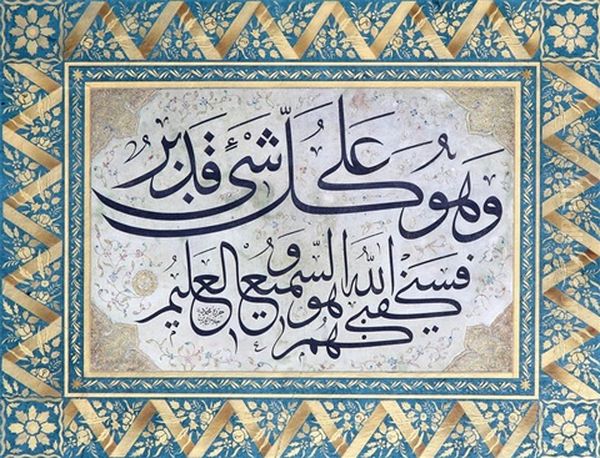 وَهُوَ عَلَىٰ كُلِّ شَيْءٍ قَدِيرٌ
فسيكفيكهم الله وهو السميع العليم